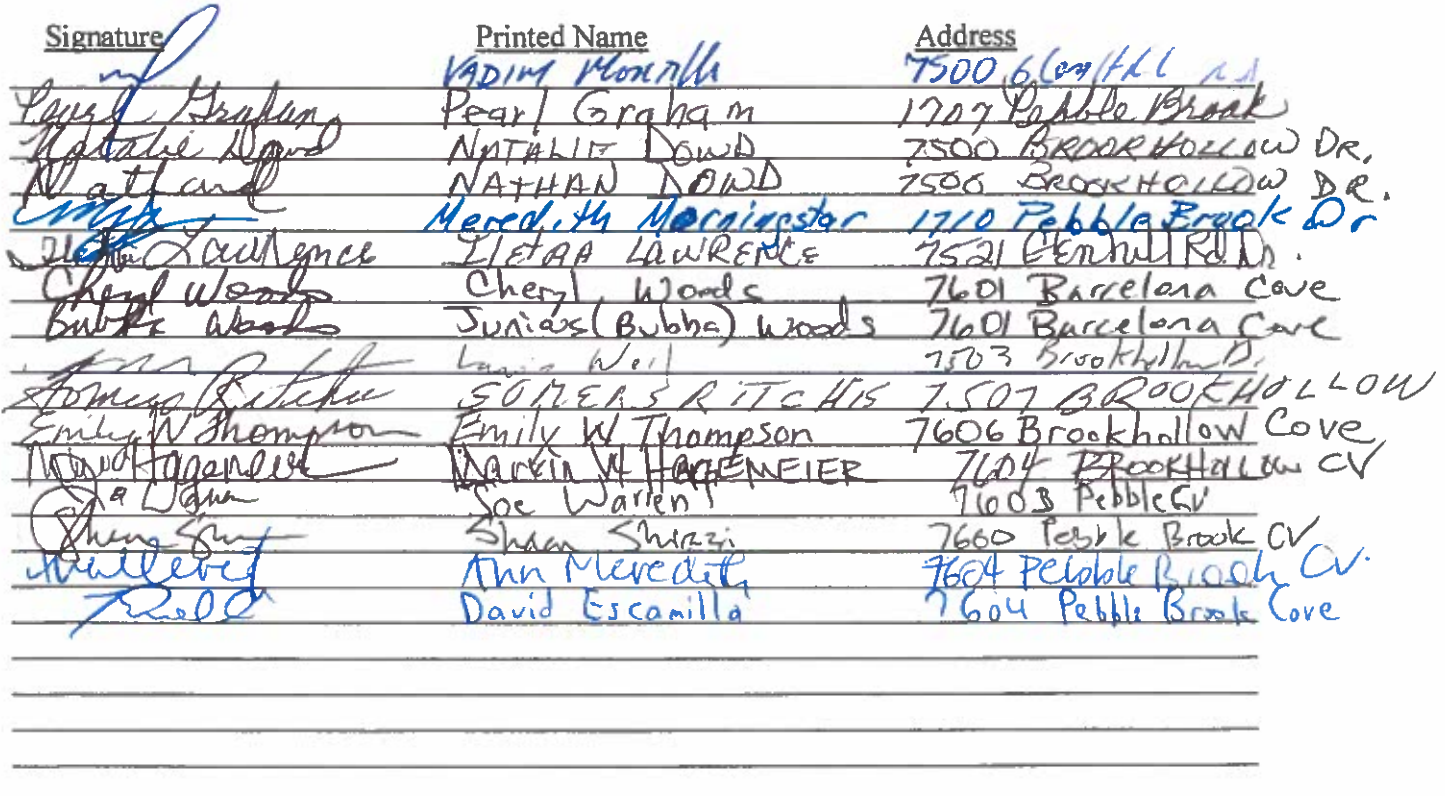 Signature Printed Name Address
VADIM 7500
Pearl Graham Pearl Graham 1707 Pebble Brook
Natalie Dowd NATALIE DOWD 7500 BROOKHOLLOW DR.
NATHAN DOWD 7500 BROOKHOLLOW DR.
Meredith Morningstar 1710 Pebble Brook Dr
Lawrence LAWRENCE 7521 Dr.
Cheryl Woods Cheryl Woods 7601 Barcelona Cove
Bubba Woods Junious (Bubba) Woods 7601 Barcelona Cove
Weil 7503 Brookhollow D.
Somers Ritchie SOMERS RITCHIE 7507 BROOKHOLLOW
Emily W Thompson Emily W Thompson 7606 Brookhollow Cove
HAGEMEIER 7604 BROOKHOLLOW CV
Joe Warren 7603 Pebble CV
7600 Pebble Brook CV
Ann Meredith 7604 Pebble Brook CV.
David Escamilla 7604 Pebble Brook Cove